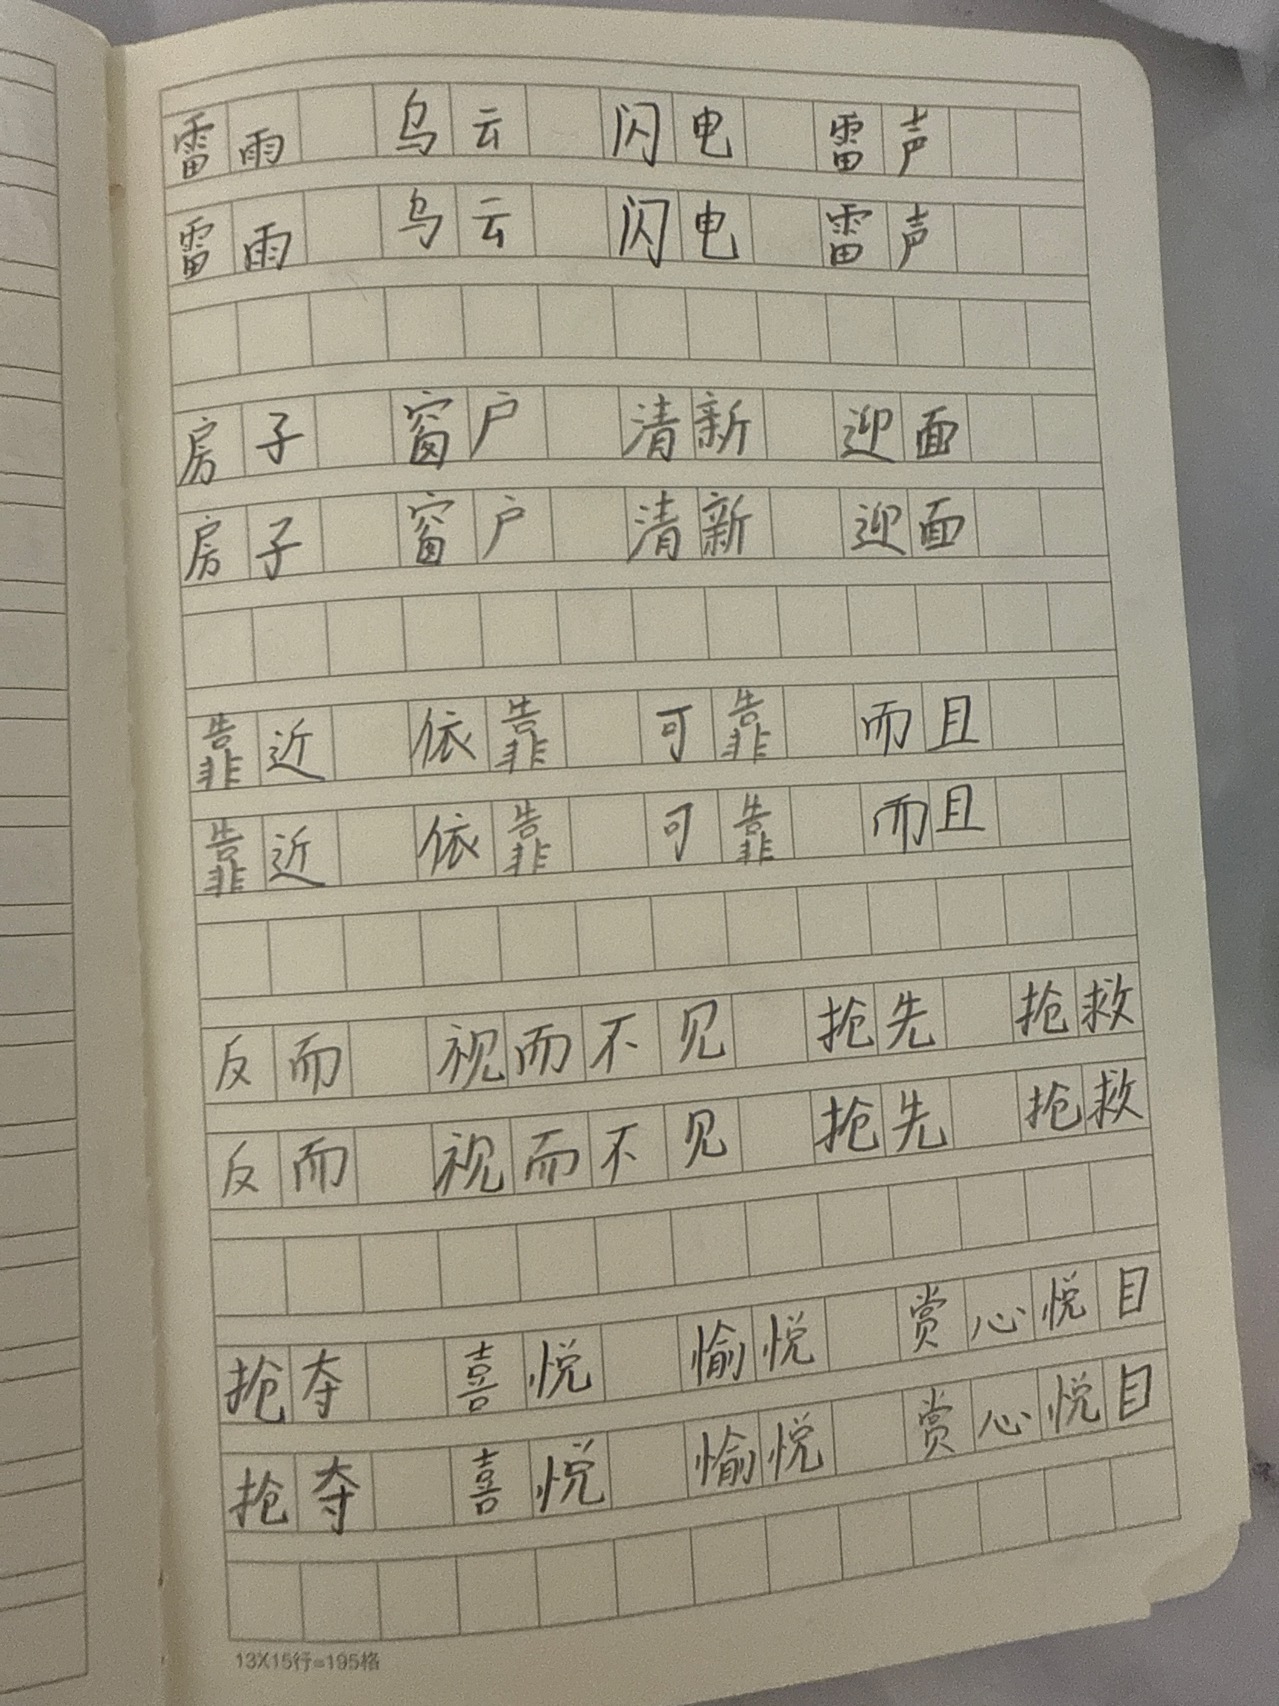 雷雨 乌云 闪电 雷声
雷雨 乌云 闪电 雷声
房子 窗户 清新 迎面
房子 窗户 清新 迎面
靠近 依靠 可靠 而且
靠近 依靠 可靠 而且
反而 视而不见 抢先 抢救
反而 视而不见 抢先 抢救
抢夺 喜悦 愉悦 赏心悦目
抢夺 喜悦 愉悦 赏心悦目
13X15行=195格